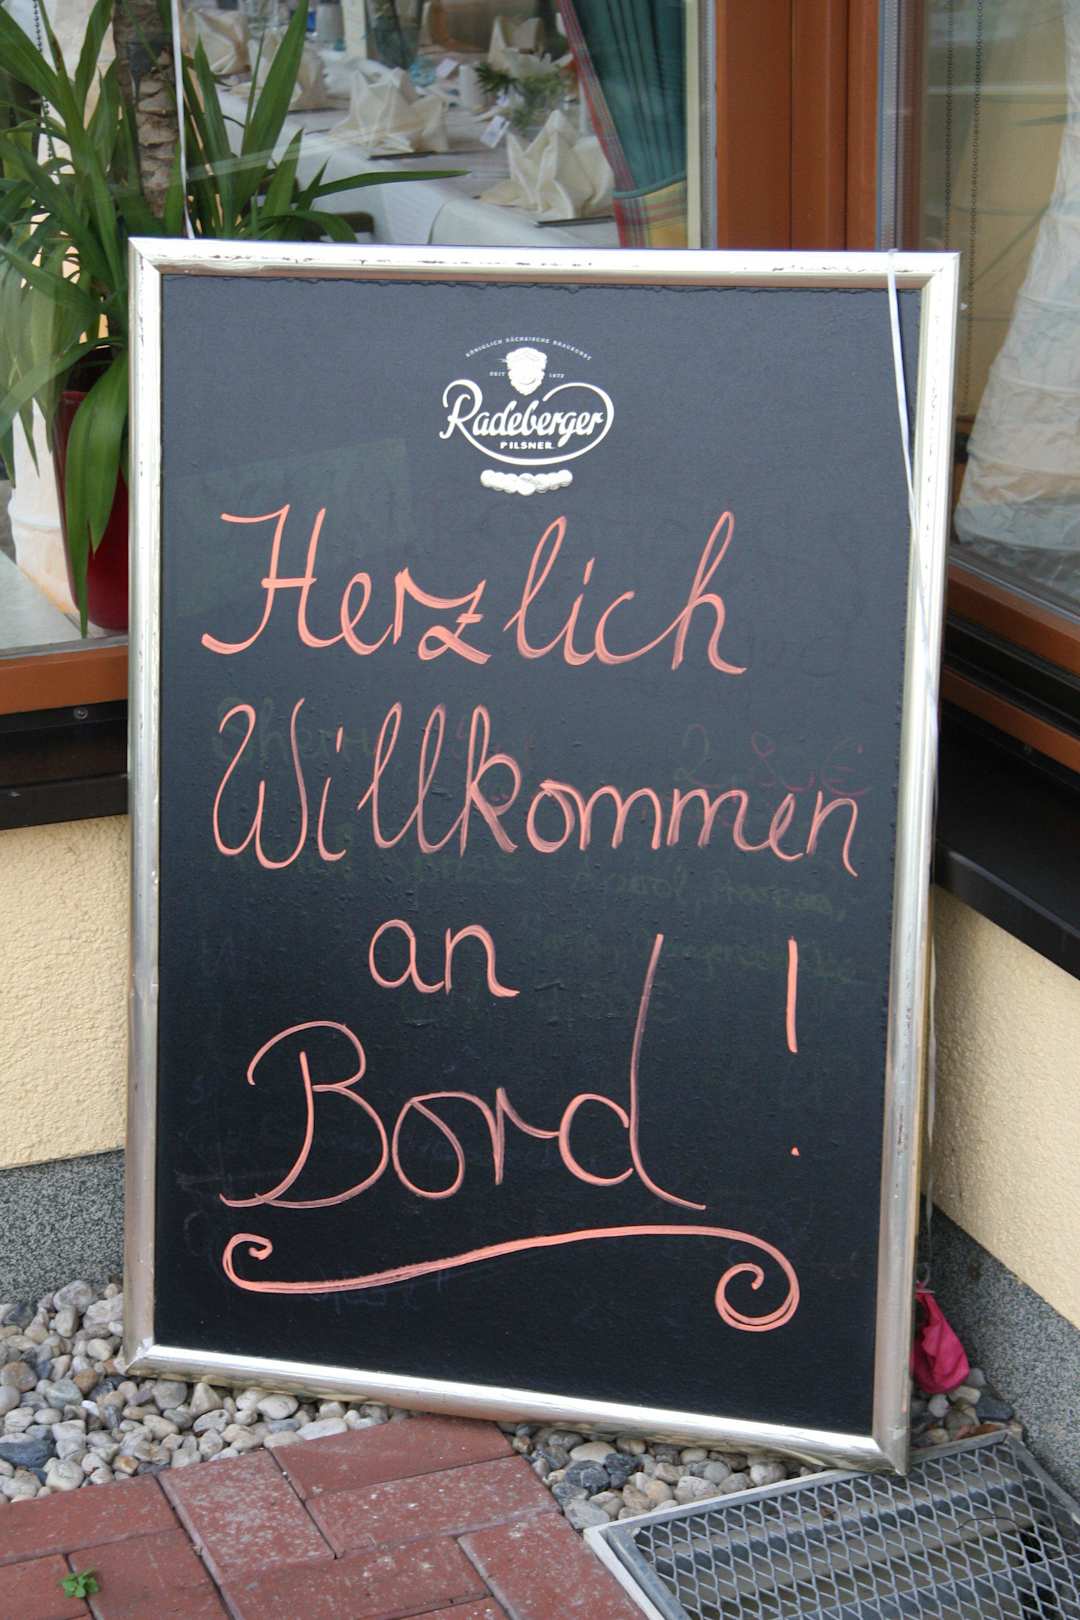 KÖNIGLICH SÄCHSISCHE BRAUKUNST
SEIT 1872
Radeberger
PILSNER
Herzlich
Willkommen
an
Bord !